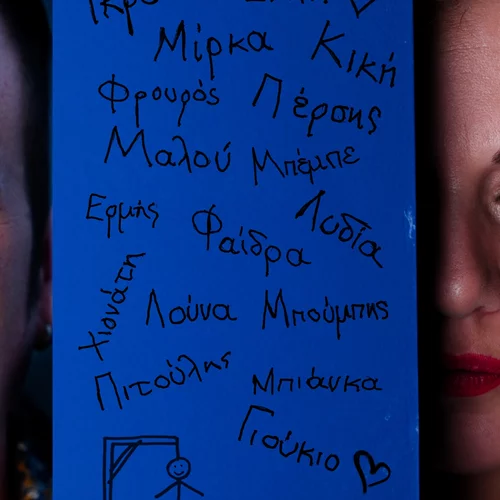 Μίρκα Κική
Φρουρός Πέρσης
Μαλού Μπέμπε
Ερμής Φαίδρα Λυδία
Χιονάτη Λούνα Μπούμπης
Πιτούλης Μπιάνκα
Γιούκιο